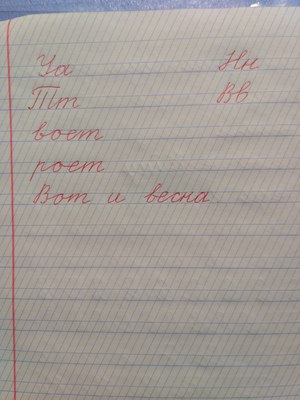 Уа Нн
Тт Вв
воет
роет
Вот и весна